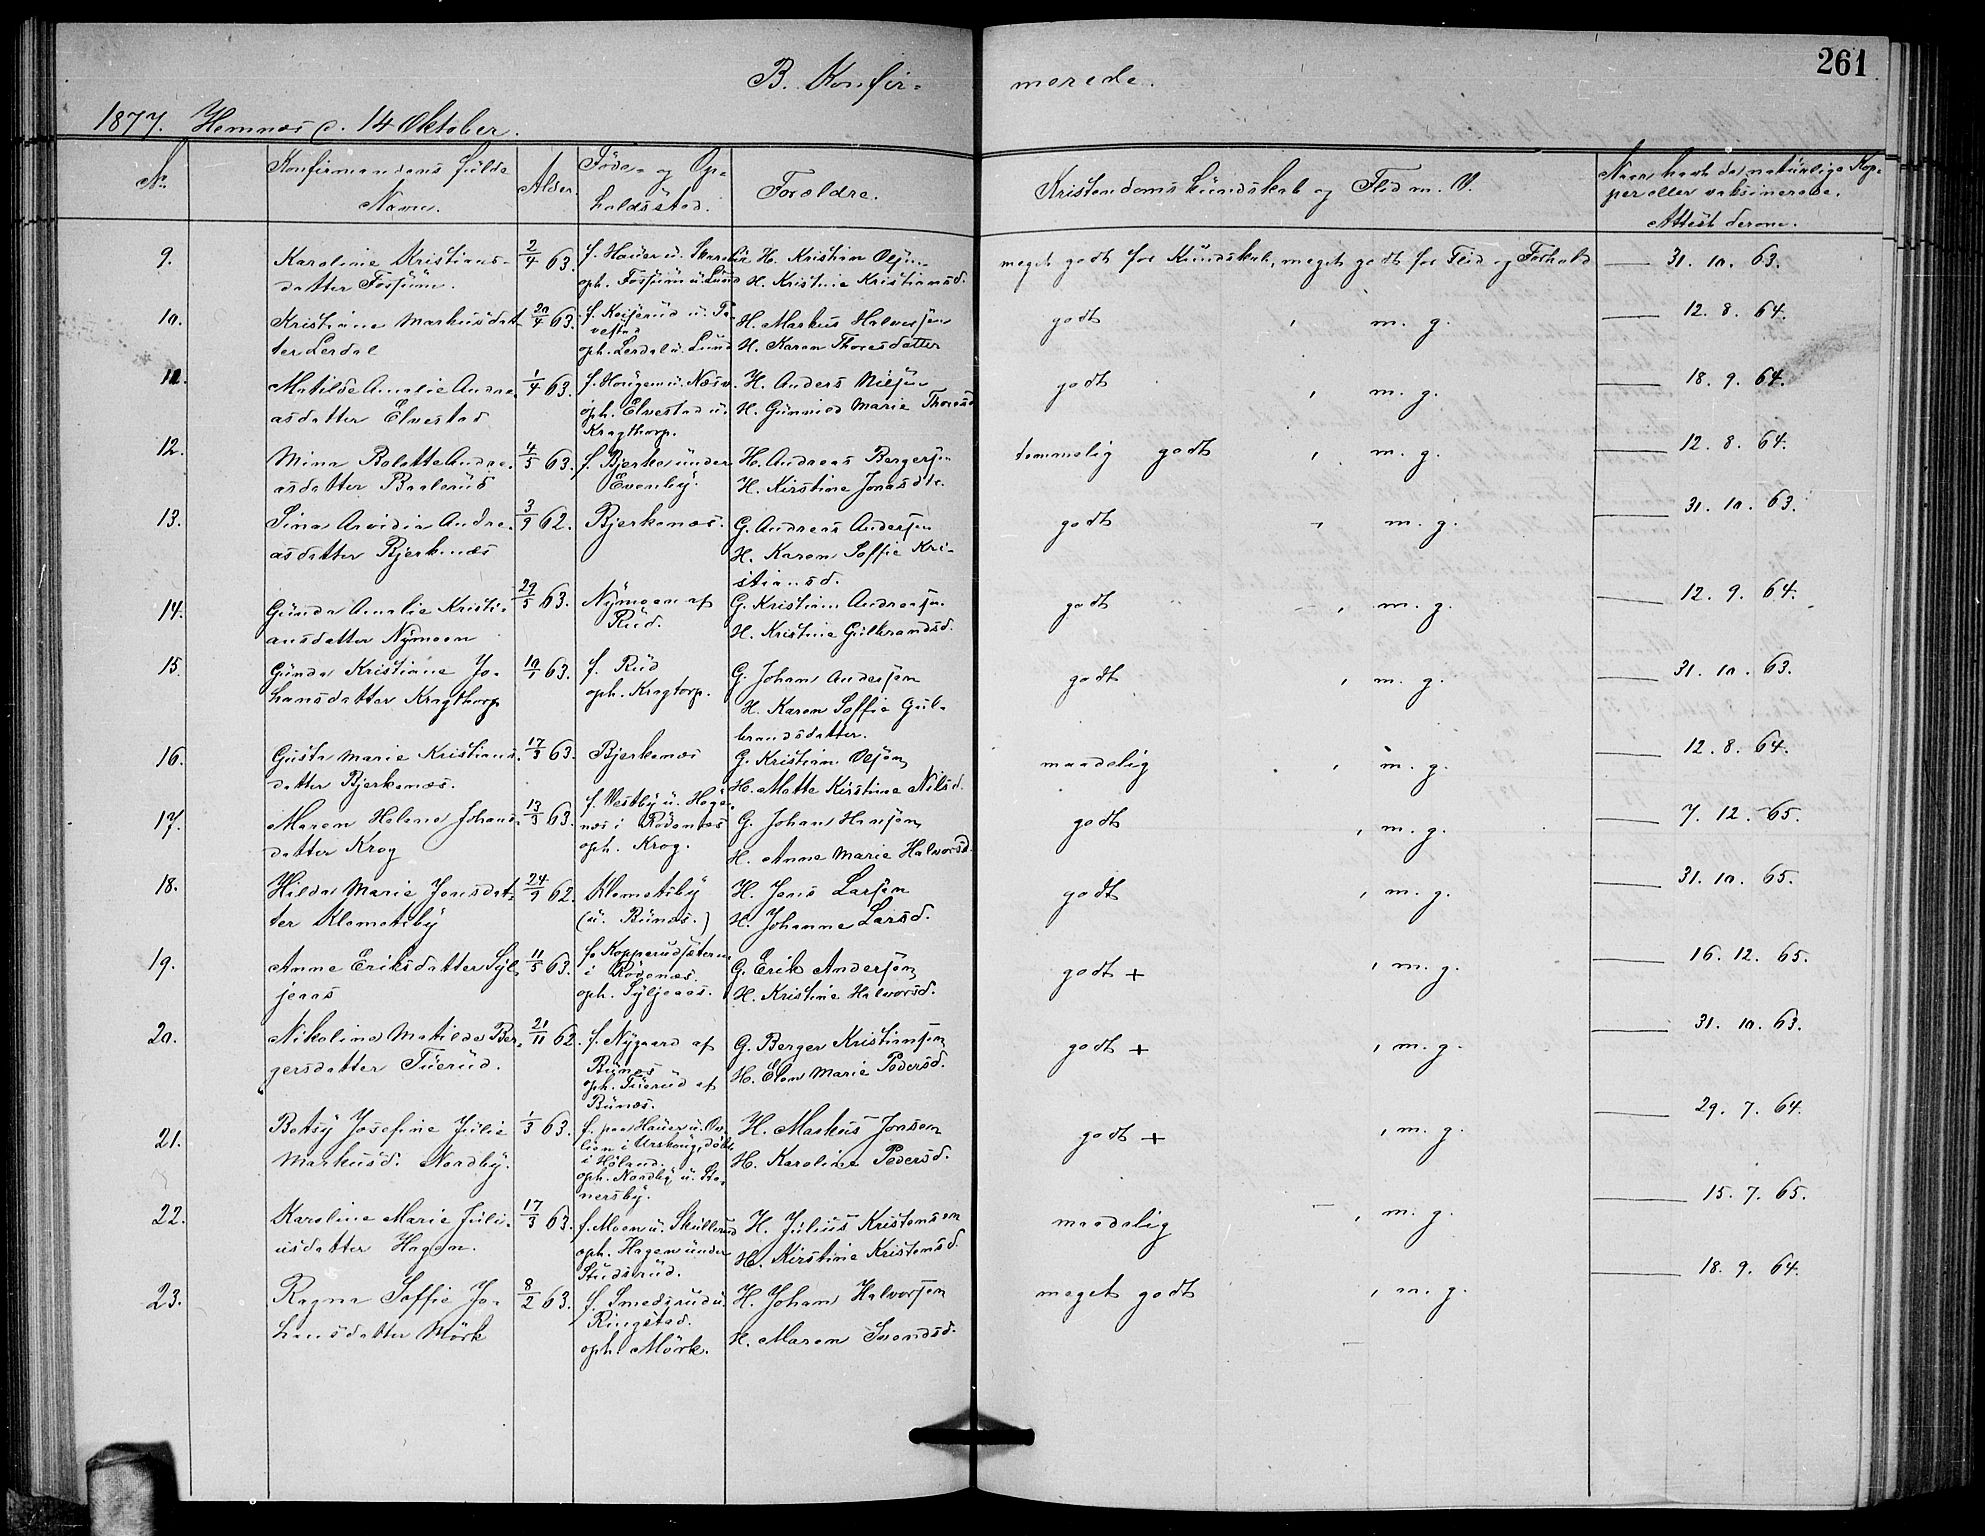 261
B. Konfir=
merede.
1877. Hemnæs d. 14 Oktober.
No
Konfirmandens fulde
Navn.
Alder.
Föde= og Op=
holdssted.
Forældre.
Kristendomskundskab og Flid m. V.
Naar havt de naturlige Kop=
per eller vaksinerede.
Attest derom.
9.
Karoline Kristians=
datter Fossum.
2/4 63.
oph. Fossum u. Lund
H. Kristian Olsen
H. Kristine Kristiansd.
meget godt for Kundskab, meget godt for Flid og Forhold
31. 10. 63.
10.
Kristiane Markusdat=
ter Lerdal
20/4 63.
oph. Lerdal u. Lund
H. Markus Halvorsen
H. Karen Thoresdatter
godt , m. g.
12. 8. 64.
11.
Matilde Amalie Andre=
asdatter Elvestad
1/4 63.
oph. Elvestad u.
Kragthorp.
H. Anders Nilsen
H. Gunnild Marie Thoresd
godt , m. g.
18. 9. 64.
12.
Mina Bolette Andre=
asdatter Baalerud
4/5 63.
f. Bjerke under
Evenby.
H. Andreas Bergersen
H. Kirstine Jonasdtr.
temmelig godt , m. g.
12. 8. 64.
13.
Sina Arvidia Andre=
asdatter Bjerkenæs
3/9 62.
Bjerkenæs.
G. Andreas Andersen
H. Karen Soffie Kri=
stiansd.
godt , m. g.
31. 10. 63.
14.
Gunda Amalie Kristi=
ansdatter Nymoen
29/5 63.
Nymoen af
Rud.
G. Kristian Andreasen.
H. Kristine Gulbrandsd.
godt , m. g.
12. 9. 64.
15.
Gunda Kristiane Jo=
hansdatter Kragthorp
63.
f. Rud
oph. Kragtorp.
G. Johan Andersen
H. Karen Soffie Gul=
brandsdatter.
godt , m. g.
31. 10. 63.
16.
Gusta Marie Kristians=
datter Bjerkenæs.
17/3 63.
Bjerkenæs
G. Kristian Olsen,
H. Mette Kirstine Nilsd.
maadelig , m. g.
12. 8. 64.
17.
Maren Helene Johans=
datter Krog
13/3 63.
f. Vestby u. Hage=
næs i Rödenæs
oph. Krog.
G. Johan Hansen,
H. Anne Marie Halvorsd.
godt , m. g.
7. 12. 65.
18.
Hilda Marie Jensdat=
ter Klemetsby
24/9 62.
Klemetsby
(u. Bunæs.)
H. Jens Larsen
H. Johanne Larsd.
godt , m. g.
31. 10. 65.
19.
Anne Eriksdatter Syl
jeaas
11/5 63.
f. Kopperudsæteren
i Rödenæs.
oph. Syljeaas.
G. Erik Andersen,
H. Kristine Halvorsd.
godt + , m. g.
16. 12. 65.
20.
Nikoline Matilde Ber=
gersdatter Tuerud.
21/11 62.
f. Nygaard af
Bunæs
oph. Tuerud af
Bunæs.
G. Berger Kristiansen
H. Elen Marie Pedersd.
godt + , m. g.
31. 10. 63.
21.
Betsy Josefine Julie
Markusd. Nordby.
1/3 63.
i Höland.
oph. Nordby u. Ste=
nersby.
H. Markus Jonsen
H. Karoline Pedersd.
godt + , m. g.
29. 7. 64.
22.
Karoline Marie Juli=
usdatter Hagen.
17/3 63.
f. Moen u. Skullerud
oph. Hagen under
Studsrud.
H. Julius Kristensen
H. Kirstine Kristensd.
maadelig , m. g.
15. 7. 65.
23.
Ragna Soffie Jo=
hansdatter Mörk
8/2 63.
f. Smedsrud u.
Ringstad.
oph. Mörk.
H. Johan Halvorsen
H. Maren Svendsd.
meget godt , m. g.
18. 9. 64.